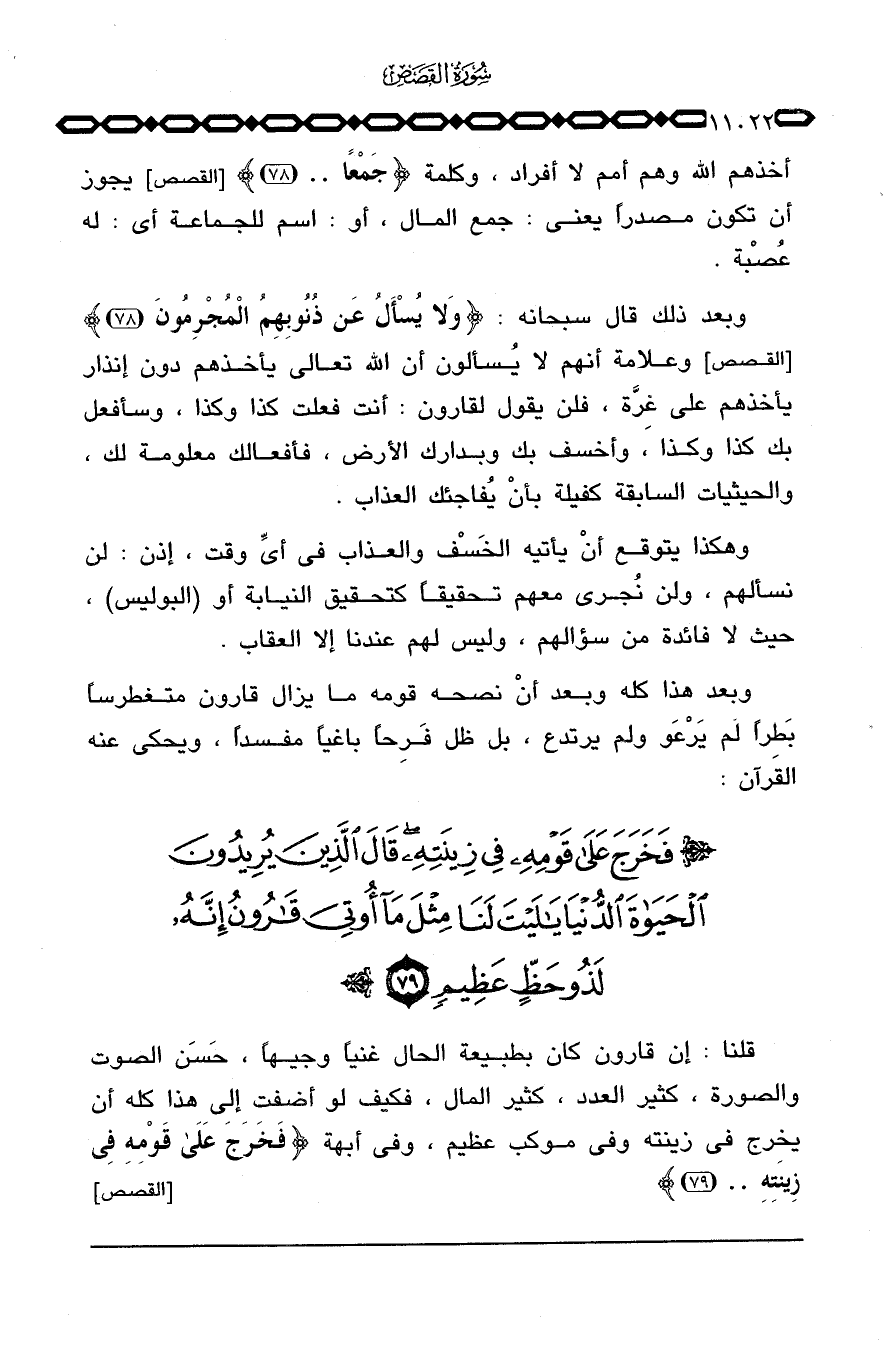 سُورَةُ القَصَصِ
١١٠٢٢
أخذهم الله وهم أمم لا أفراد ، وكلمة ﴿ جَمْعًا .. (٧٨) ﴾ [القصص] يجوز
أن تكون مصدراً يعنى : جمع المال ، أو : اسم للجماعة أى : له
عُصْبة .
وبعد ذلك قال سبحانه : ﴿ وَلا يُسْأَلُ عَن ذُنُوبِهِمُ الْمُجْرِمُونَ (٧٨) ﴾
[القصص] وعلامة أنهم لا يُسألون أن الله تعالى يأخذهم دون إنذار
يأخذهم على غِرَّة ، فلن يقول لقارون : أنت فعلت كذا وكذا ، وسأفعل
بك كذا وكذا ، وأخسف بك وبدارك الأرض ، فأفعالك معلومة لك ،
والحيثيات السابقة كفيلة بأنْ يُفاجئك العذاب .
وهكذا يتوقع أنْ يأتيه الخَسْف والعذاب فى أىِّ وقت ، إذن : لن
نسألهم ، ولن نُجرى معهم تحقيقاً كتحقيق النيابة أو (البوليس) ،
حيث لا فائدة من سؤالهم ، وليس لهم عندنا إلا العقاب .
وبعد هذا كله وبعد أنْ نصحه قومه ما يزال قارون متغطرساً
بَطِراً لم يَرْعَوِ ولم يرتدع ، بل ظل فَرِحاً باغياً مفسداً ، ويحكى عنه
القرآن :
﴿ فَخَرَجَ عَلَىٰ قَوْمِهِۦ فِي زِينَتِهِۦۖ قَالَ ٱلَّذِينَ يُرِيدُونَ
ٱلْحَيَوٰةَ ٱلدُّنْيَا يَٰلَيْتَ لَنَا مِثْلَ مَآ أُوتِيَ قَٰرُونُ إِنَّهُۥ
لَذُو حَظٍّ عَظِيمٍ ٧٩ ﴾
قلنا : إن قارون كان بطبيعة الحال غنياً وجيهاً ، حَسَن الصوت
والصورة ، كثير العدد ، كثير المال ، فكيف لو أضفت إلى هذا كله أن
يخرج فى زينته وفى موكب عظيم ، وفى أبهة ﴿ فَخَرَجَ عَلَىٰ قَوْمِهِ فِى
زِينَتِهِ .. (٧٩) ﴾ [القصص]